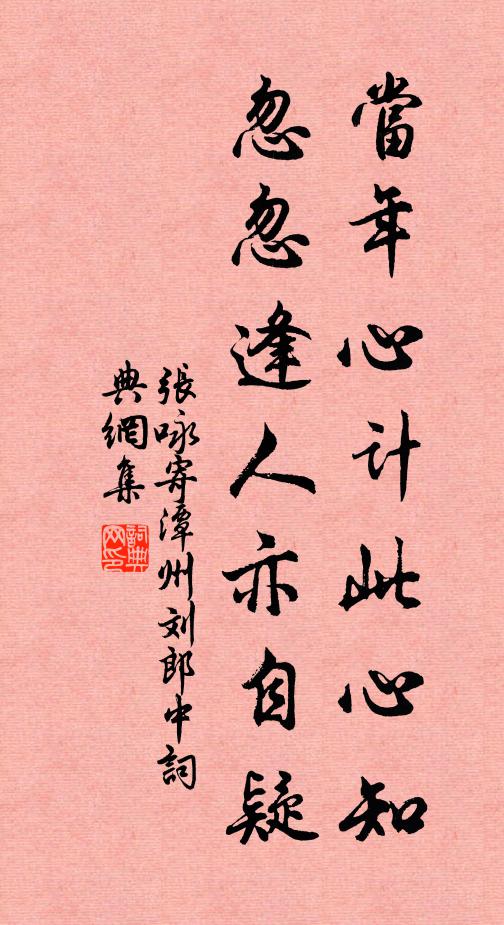 當年心计此心知
忽忽逢人亦自疑
張咏寄潭州刘郎中詞
典網集
詞典
网印